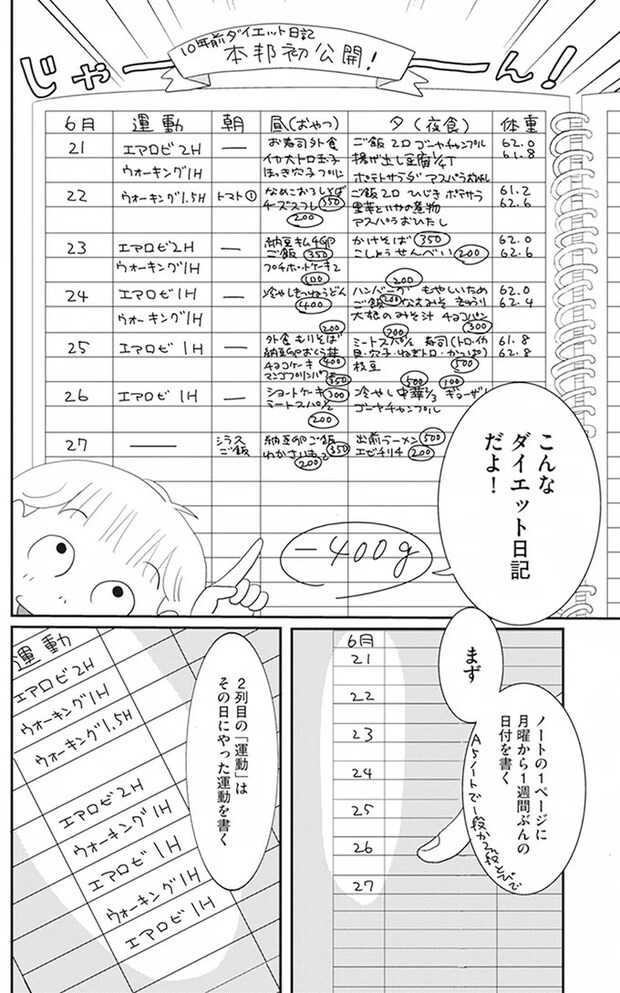 10年前ダイエット日記
本邦初公開!
じゃーん!
6月 運動 朝 昼(おやつ) 夕(夜食) 体重
21 エアロビ2H ー お寿司外食 ご飯2口 ゴーヤチャンプル 62.0
ウォーキング1H イカ大トロ玉子 揚げ出し豆腐1/4丁 61.8
ほっき穴子 ポテトサラダ アスパラおひたし
22 ウォーキング1.5H トマト① なめこおろしそば ご飯2口 ひじき ポテサラ 61.2
チーズスフレ 350 里芋といかの煮物 62.6
200 アスパラおひたし
23 エアロビ2H ー 納豆キムチ卵 かけそば 350 62.0
ウォーキング1H ご飯 350 こしょうせんべい 200 62.6
プチホットケーキ2
100 200
24 エアロビ1H ー 冷やしきつねうどん ハンバーグ もやしいため 62.0
ウォーキング1H 400 ご飯 200 なすみそ きゅうり 62.4
大根のみそ汁 チョコパン
200 200 300
25 エアロビ1H ー 外食もりそば ミートスパ1/2 寿司(トロ・イカ 61.8
納豆卵おくら 貝・穴子・ねぎトロ・かっぱ) 62.8
チョコケーキ 400 枝豆 500
マンゴプリンパフェ
350 500 100
26 エアロビ1H ー ショートケーキ 300 冷やし中華1/3 ギョーザ
ミートスパ1/2 ゴーヤチャンプル
200
27 ー シラスご飯 納豆卵ご飯 出前ラーメン 500
わかさいも2 350 エビチリ4 200
200
−400g
こんな
ダイエット日記
だよ!
まず
ノートの1ページに
月曜から1週間ぶんの
日付を書く
A5ノートで1段か2段とびで
6月
21
22
23
24
25
26
27
2列目の「運動」は
その日にやった運動を書く
運動
エアロビ2H
ウォーキング1H
ウォーキング1.5H
エアロビ2H
ウォーキング1H
エアロビ1H
ウォーキング1H
エアロビ1H